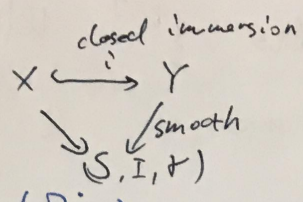 closed immersion
i
X Y
smooth
(S, I, γ)